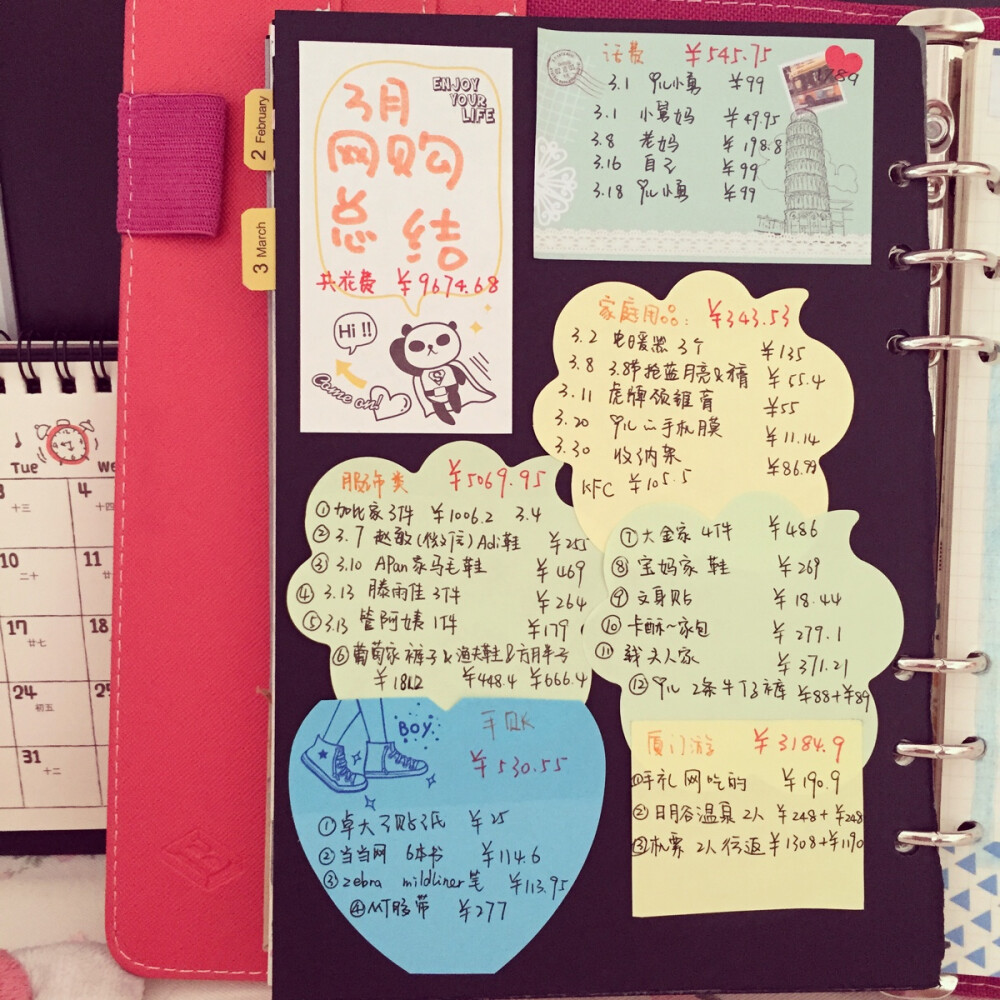 2 February
3 March
ENJOY
YOUR
LIFE
3月
网购
总结
共花费 ¥9674.68
Hi !!
Come on!
话费 ¥545.75
3.1 小勇 ¥99
3.1 小舅妈 ¥49.95
3.8 老妈 ¥198.8
3.16 自己 ¥99
3.18 小勇 ¥99
家庭用品: ¥343.53
3.2 电暖器 3个 ¥135
3.8 3.8节抢蓝月亮&精 ¥55.4
3.11 虎牌颈椎膏 ¥55
3.20 手机膜 ¥11.14
3.30 收纳架 ¥86.99
KFC ¥105.5
服饰类 ¥5069.95
①加比家3件 ¥1006.2 3.4
②3.7 赵敏(微信)Adi鞋 ¥255
③3.10 APan家马毛鞋 ¥469
④3.13 滕雨佳 3件 ¥264
⑤3.13 管阿姨 1件 ¥179
⑥葡萄家裤子&渔夫鞋&方月半子
¥181.2 ¥448.4 ¥666.4
⑦大金家 4件 ¥486
⑧宝妈家 鞋 ¥269
⑨文身贴 ¥18.44
⑩卡酥~家包 ¥279.1
⑪钱夫人家 ¥371.21
⑫ 2条牛仔裤 ¥88+¥89
BOY
手账
¥530.55
①卓大了贴纸 ¥25
②当当网 6本书 ¥114.6
③zebra mildliner笔 ¥113.95
④MT胶带 ¥277
厦门游 ¥3184.9
①手礼网吃的 ¥190.9
②日月谷温泉2人 ¥248+¥248
③机票 2人往返¥1308+¥1190
Tue We
3 4
十三 十四
10 11
二十
17 18
廿七
24 25
初五
31
十二